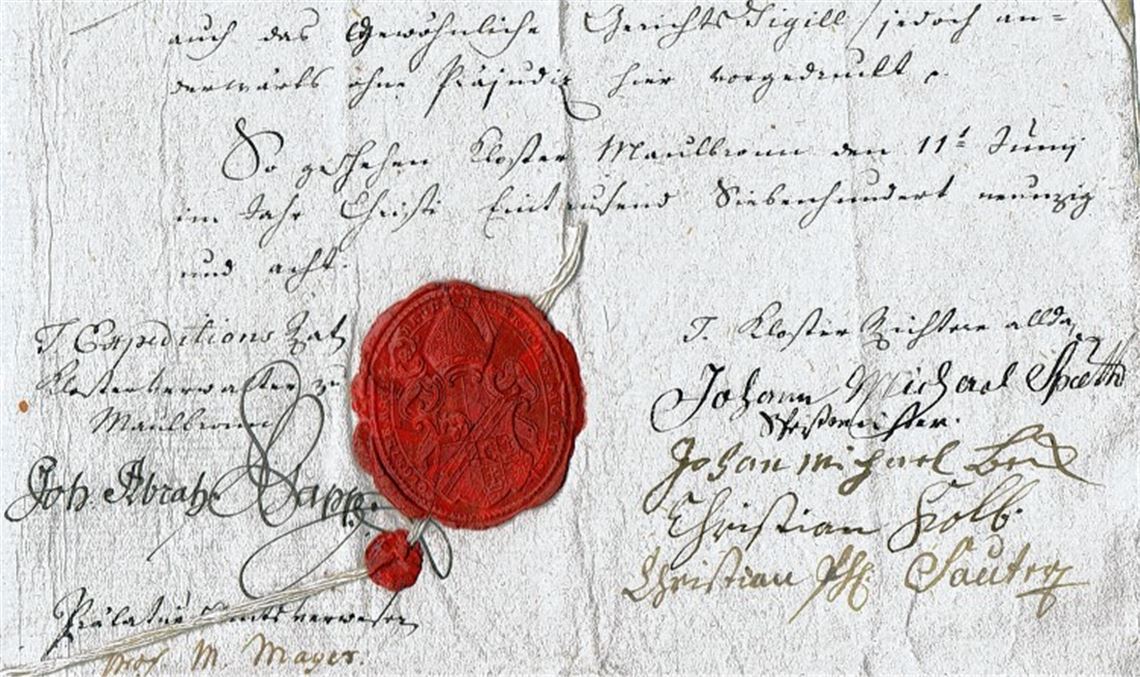 auch das gewöhnliche Gerichts Sigill, jedoch an=
derwärts ohne Präjudiz hier vorgedruckt.
So geschehen Kloster Maulbronn den 11t Junij
im Jahr Christi Eintausend Siebenhundert neunzig
und acht.
T. Expeditions Rath
Klosterverwalter zu
Maulbronn
Joh. Abrah.
Prälatur Amtsverweser
Prof. M. Mayer.
T. Kloster Richter allda,
Johann Michael Späth
Johan Michael
Christian Kolb.
Christian Sauter